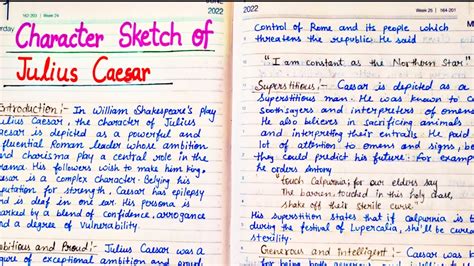 2022
Character Sketch of
Julius Caesar
Introduction:- In William Shakespeare's play
Julius Caesar, the character of Julius
Caesar is depicted as a powerful and
influential Roman leader whose ambition
and charisma play a central role in the
drama. His followers wish to make him king,
Caesar is a complex character. Belying his
reputation for strength, Caesar has epilepsy
and is deaf in one ear. His persona is
marked by a blend of confidence, arrogance
and a degree of vulnerability.
Ambitious and Proud:- Julius Caesar was a
figure of exceptional ambition and proud.
2022
Week 25
control of Rome and its people which
threatens the republic. He said
"I am constant as the Northern Star"
Superstitious:- Caesar is depicted as a
Superstitious man. He was known to
Soothsayers and interpreters of omens
He also believes in sacrificing animals
and interpreting their entrails. He paid
lot of attention to omens and signs, bo
they could predict his future. For examp
he orders Antony
touch Calpurnia; for our elders say
The barren, touched in this holy chase,
Shake off their sterile curse
His superstition states that if Calpurnia is
during the festival of Lupercalia, she'll be cure
sterility.
Generous and intelligent:- Caesar was
for being both